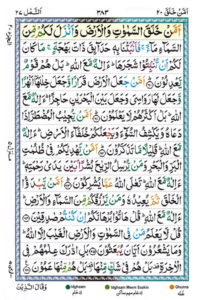 اَمَّنْ خَلَقَ ٢٠
٣٨٣
اَلنَّمْل ٢٧
اَمَّنْ خَلَقَ السَّمٰوٰتِ وَالْاَرْضَ وَاَنْزَلَ لَكُمْ مِّنَ
السَّمَآءِ مَآءً ۚ فَاَنْۢبَتْنَا بِهٖ حَدَآئِقَ ذَاتَ بَهْجَةٍ ۚ مَا كَانَ
لَكُمْ اَنْ تُنْۢبِتُوْا شَجَرَهَا ؕ ءَاِلٰهٌ مَّعَ اللّٰهِ ؕ بَلْ هُمْ قَوْمٌ
يَّعْدِلُوْنَ ؕ اَمَّنْ جَعَلَ الْاَرْضَ قَرَارًا وَّجَعَلَ خِلٰلَهَاۤ اَنْهٰرًا
وَّجَعَلَ لَهَا رَوَاسِيَ وَجَعَلَ بَيْنَ الْبَحْرَيْنِ حَاجِزًا ؕ ءَاِلٰهٌ مَّعَ
اللّٰهِ ؕ بَلْ اَكْثَرُهُمْ لَا يَعْلَمُوْنَ ؕ اَمَّنْ يُّجِيْبُ الْمُضْطَرَّ اِذَا
دَعَاهُ وَيَكْشِفُ السُّوْٓءَ وَيَجْعَلُكُمْ خُلَفَآءَ الْاَرْضِ ؕ ءَاِلٰهٌ
مَّعَ اللّٰهِ ؕ قَلِيْلًا مَّا تَذَكَّرُوْنَ ؕ اَمَّنْ يَّهْدِيْكُمْ فِيْ ظُلُمٰتِ
الْبَرِّ وَالْبَحْرِ وَمَنْ يُّرْسِلُ الرِّيٰحَ بُشْرًۢا بَيْنَ يَدَيْ رَحْمَتِهٖ ؕ
ءَاِلٰهٌ مَّعَ اللّٰهِ ؕ تَعٰلَى اللّٰهُ عَمَّا يُشْرِكُوْنَ ؕ اَمَّنْ يَّبْدَؤُا
الْخَلْقَ ثُمَّ يُعِيْدُهٗ وَمَنْ يَّرْزُقُكُمْ مِّنَ السَّمَآءِ وَالْاَرْضِ ؕ
ءَاِلٰهٌ مَّعَ اللّٰهِ ؕ قُلْ هَاتُوْا بُرْهَانَكُمْ اِنْ كُنْتُمْ صٰدِقِيْنَ
قُلْ لَّا يَعْلَمُ مَنْ فِي السَّمٰوٰتِ وَالْاَرْضِ الْغَيْبَ اِلَّا اللّٰهُ ؕ
وَمَا يَشْعُرُوْنَ اَيَّانَ يُبْعَثُوْنَ بَلِ ادّٰرَكَ عِلْمُهُمْ فِي
الْاٰخِرَةِ ۫ بَلْ هُمْ فِيْ شَكٍّ مِّنْهَا ۫ بَلْ هُمْ مِّنْهَا عَمُوْنَ
وَقَالَ الَّذِيْنَ